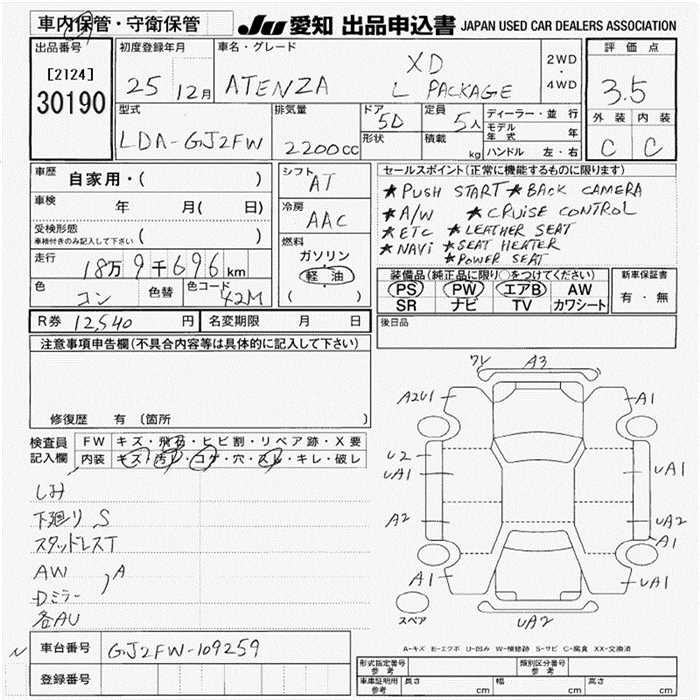 車内保管・守衛保管
JU 愛知 出品申込書 JAPAN USED CAR DEALERS ASSOCIATION
出品番号
[2124]
30190
初度登録年月
25 12月
車名・グレード
ATENZA
XD
L PACKAGE
2WD
・
4WD
評価点
3.5
外装 内装
C C
型式
LDA-GJ2FW
排気量
2200cc
ドア
5D
形状
定員
5人
積載
kg
ディーラー・並行
モデル年式 年
ハンドル 左・右
車歴
自家用・( )
車検
年 月( 日)
受検形態
車検付きのみ記入して下さい ( )
走行
18万9千696km
色
コン
色替
色コード
42M
シフト
AT
冷房
AAC
燃料
ガソリン
軽・油
( )
セールスポイント(正常に機能するものに限ります)
★PUSH START ★BACK CAMERA
★A/W ★CRUISE CONTROL
★ETC ★LEATHER SEAT
★NAVi ★SEAT HEATER
★POWER SEAT
装備品(純正品に限り○をつけてください)
PS PW エアB AW
SR ナビ TV カワシート
新車保証書
有・無
R券 12,540 円
名変期限 月 日
後日品
注意事項申告欄(不具合内容等は具体的に記入して下さい)
修復歴 有 (箇所 )
検査員
記入欄
FW キズ・飛石・ヒビ割・リペア跡・X要
内装 キズ・汚れ・コゲ・穴・スレ・キレ・破レ
下廻り S
スタッドレスT
AW
Dミラー
, A
各AU
車台番号 GJ2FW-109259
登録番号
ワレ A3
A2U1 A1
U2
UA1 UA1
A2 UA2
A1
A1 UA1
UA2
スペア
A-キズ E-エクボ U-凹み W-補修跡 S-サビ C-腐食 XX-交換済
形式指定番号
参考
類別区分番号
参考
車庫証明用
参考
長さ cm
幅 cm
高さ cm